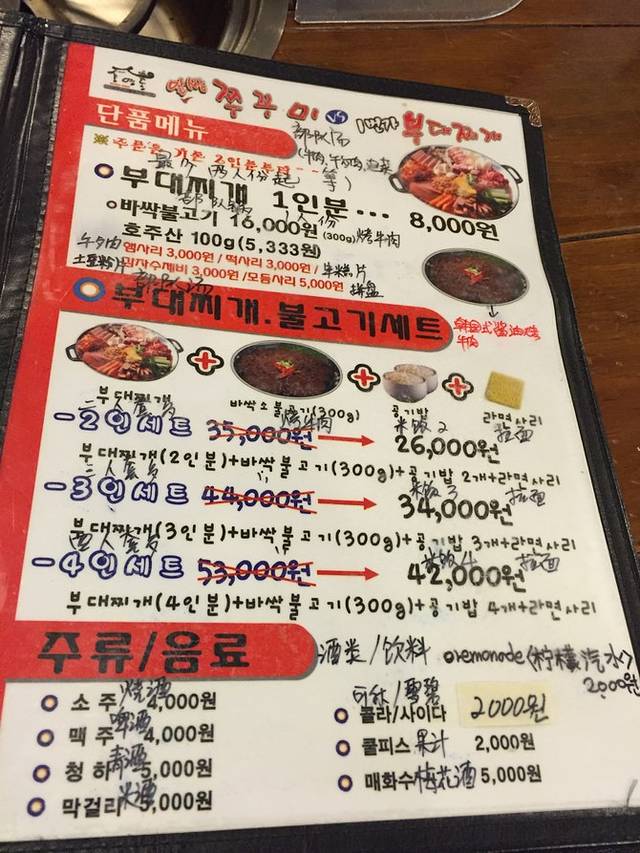 쭈꾸미 VS 1번가 부대찌개
단품메뉴
※주문은 기본 2인분부터~~
部队汤
(牛肉,牛内,泡菜
等)
最少 两人份起
부대찌개 1인분... 8,000원
部队锅 1人份
바싹불고기 16,000원 (300g) 烤牛肉
호주산 100g(5,333원)
햄사리 3,000원 / 떡사리 3,000원 /
감자수제비 3,000원 /모듬사리 5,000원 拼盘
午夕肉
土豆粉片
部队汤
부대찌개.불고기세트
韩国式酱油烤
牛肉
부대찌개 바싹소불고기(300g) 공기밥 라면사리
二人套
烤牛肉 米饭 2 拉面
-2인세트 35,000원 26,000원
부대찌개(2인분)+바싹불고기(300g)+공기밥 2개+라면사리
三人套
米饭 3 拉面
-3인세트 44,000원 34,000원
부대찌개(3인분)+바싹불고기(300g)+공기밥 3개+라면사리
米饭 4 拉面
-4인세트 53,000원 42,000원
부대찌개(4인분)+바싹불고기(300g)+공기밥 4개+라면사리
주류/음료 酒类/饮料 oremonade(柠檬汽水)
2000원
소주 烧酒 4,000원
맥주 啤酒 4,000원
청하 青酒 5,000원
막걸리 米酒 5,000원
可乐/雪碧
콜라/사이다 2000원
쿨피스 果汁 2,000원
매화수 梅花酒 5,000원